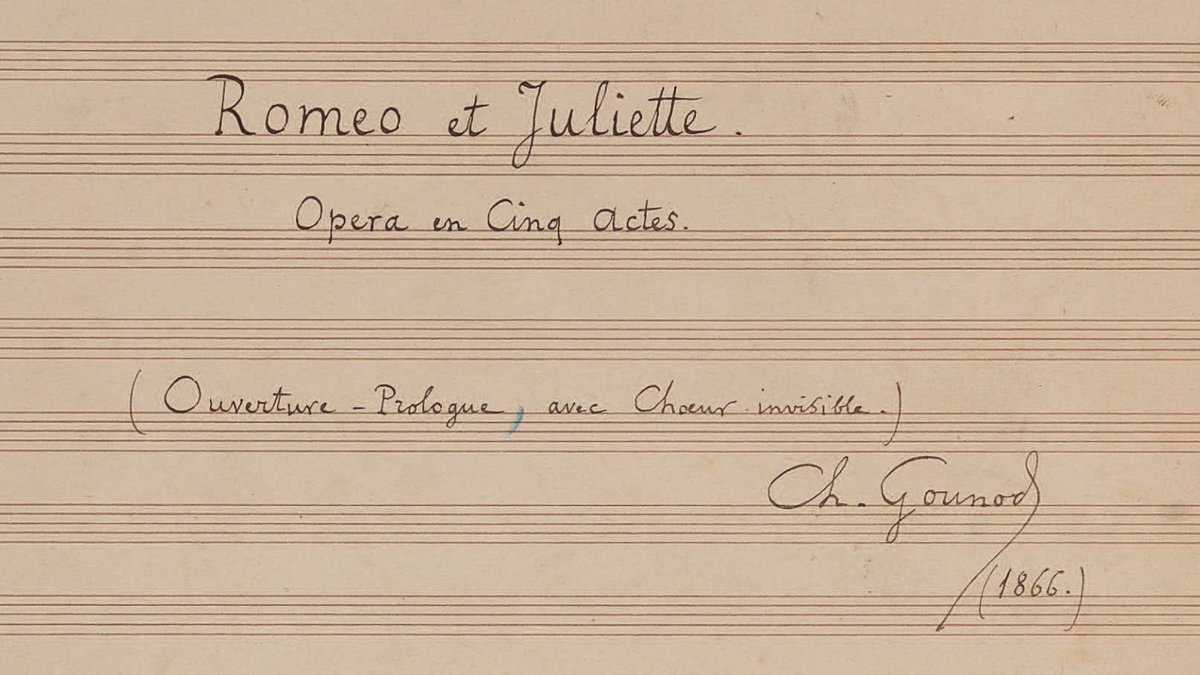 Romeo et Juliette.
Opera en Cinq actes.
(Ouverture - Prologue, avec Chœur invisible.)
Ch. Gounod
(1866.)